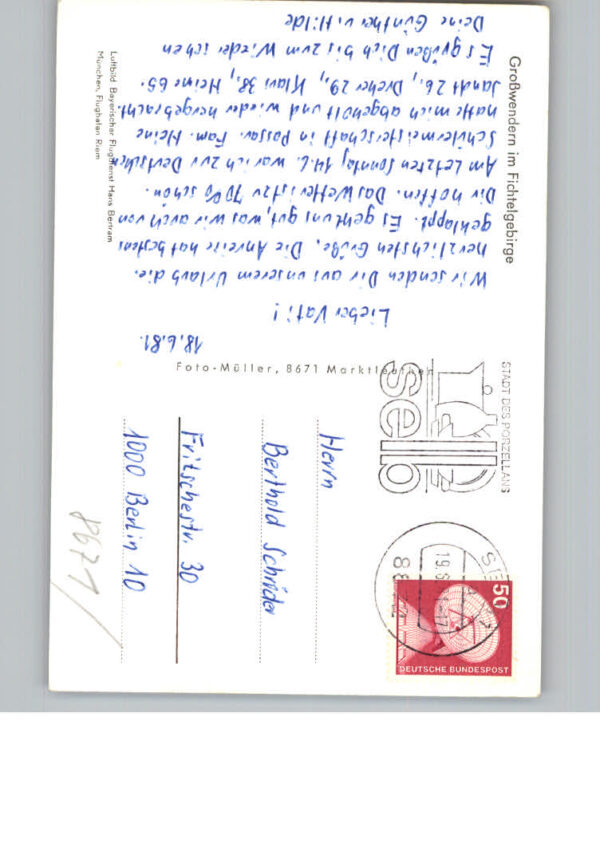 Großwendern im Fichtelgebirge
18.6.81.
Lieber Vati!
Wir senden Dir aus unserem Urlaub die
herzlichsten Grüße. Die Anreise hat bestens
geklappt. Es geht uns gut, was wir auch von
Dir hoffen. Das Wetter ist zu 70% schön.
Am Letzten Sonntag 14.6. war ich zur Deutschen
Schülermeisterschaft in Passau. Fam. Heine
hatte mich abgeholt und wieder hergebracht.
Jandt 26., Dreher 29., Klavi 38., Heine 65.
Es grüßen Dich bis zum Wiedersehen
Deine Günther u. Hilde
Luftbild Bayerischer Flugdienst Hans Bertram
München, Flughafen Riem
Foto-Müller, 8671 Marktleuthen
STADT DES PORZELLANS
selb
50
DEUTSCHE BUNDESPOST
Herrn
Berthold Schröder
Fritschestr. 30
1000 Berlin 10